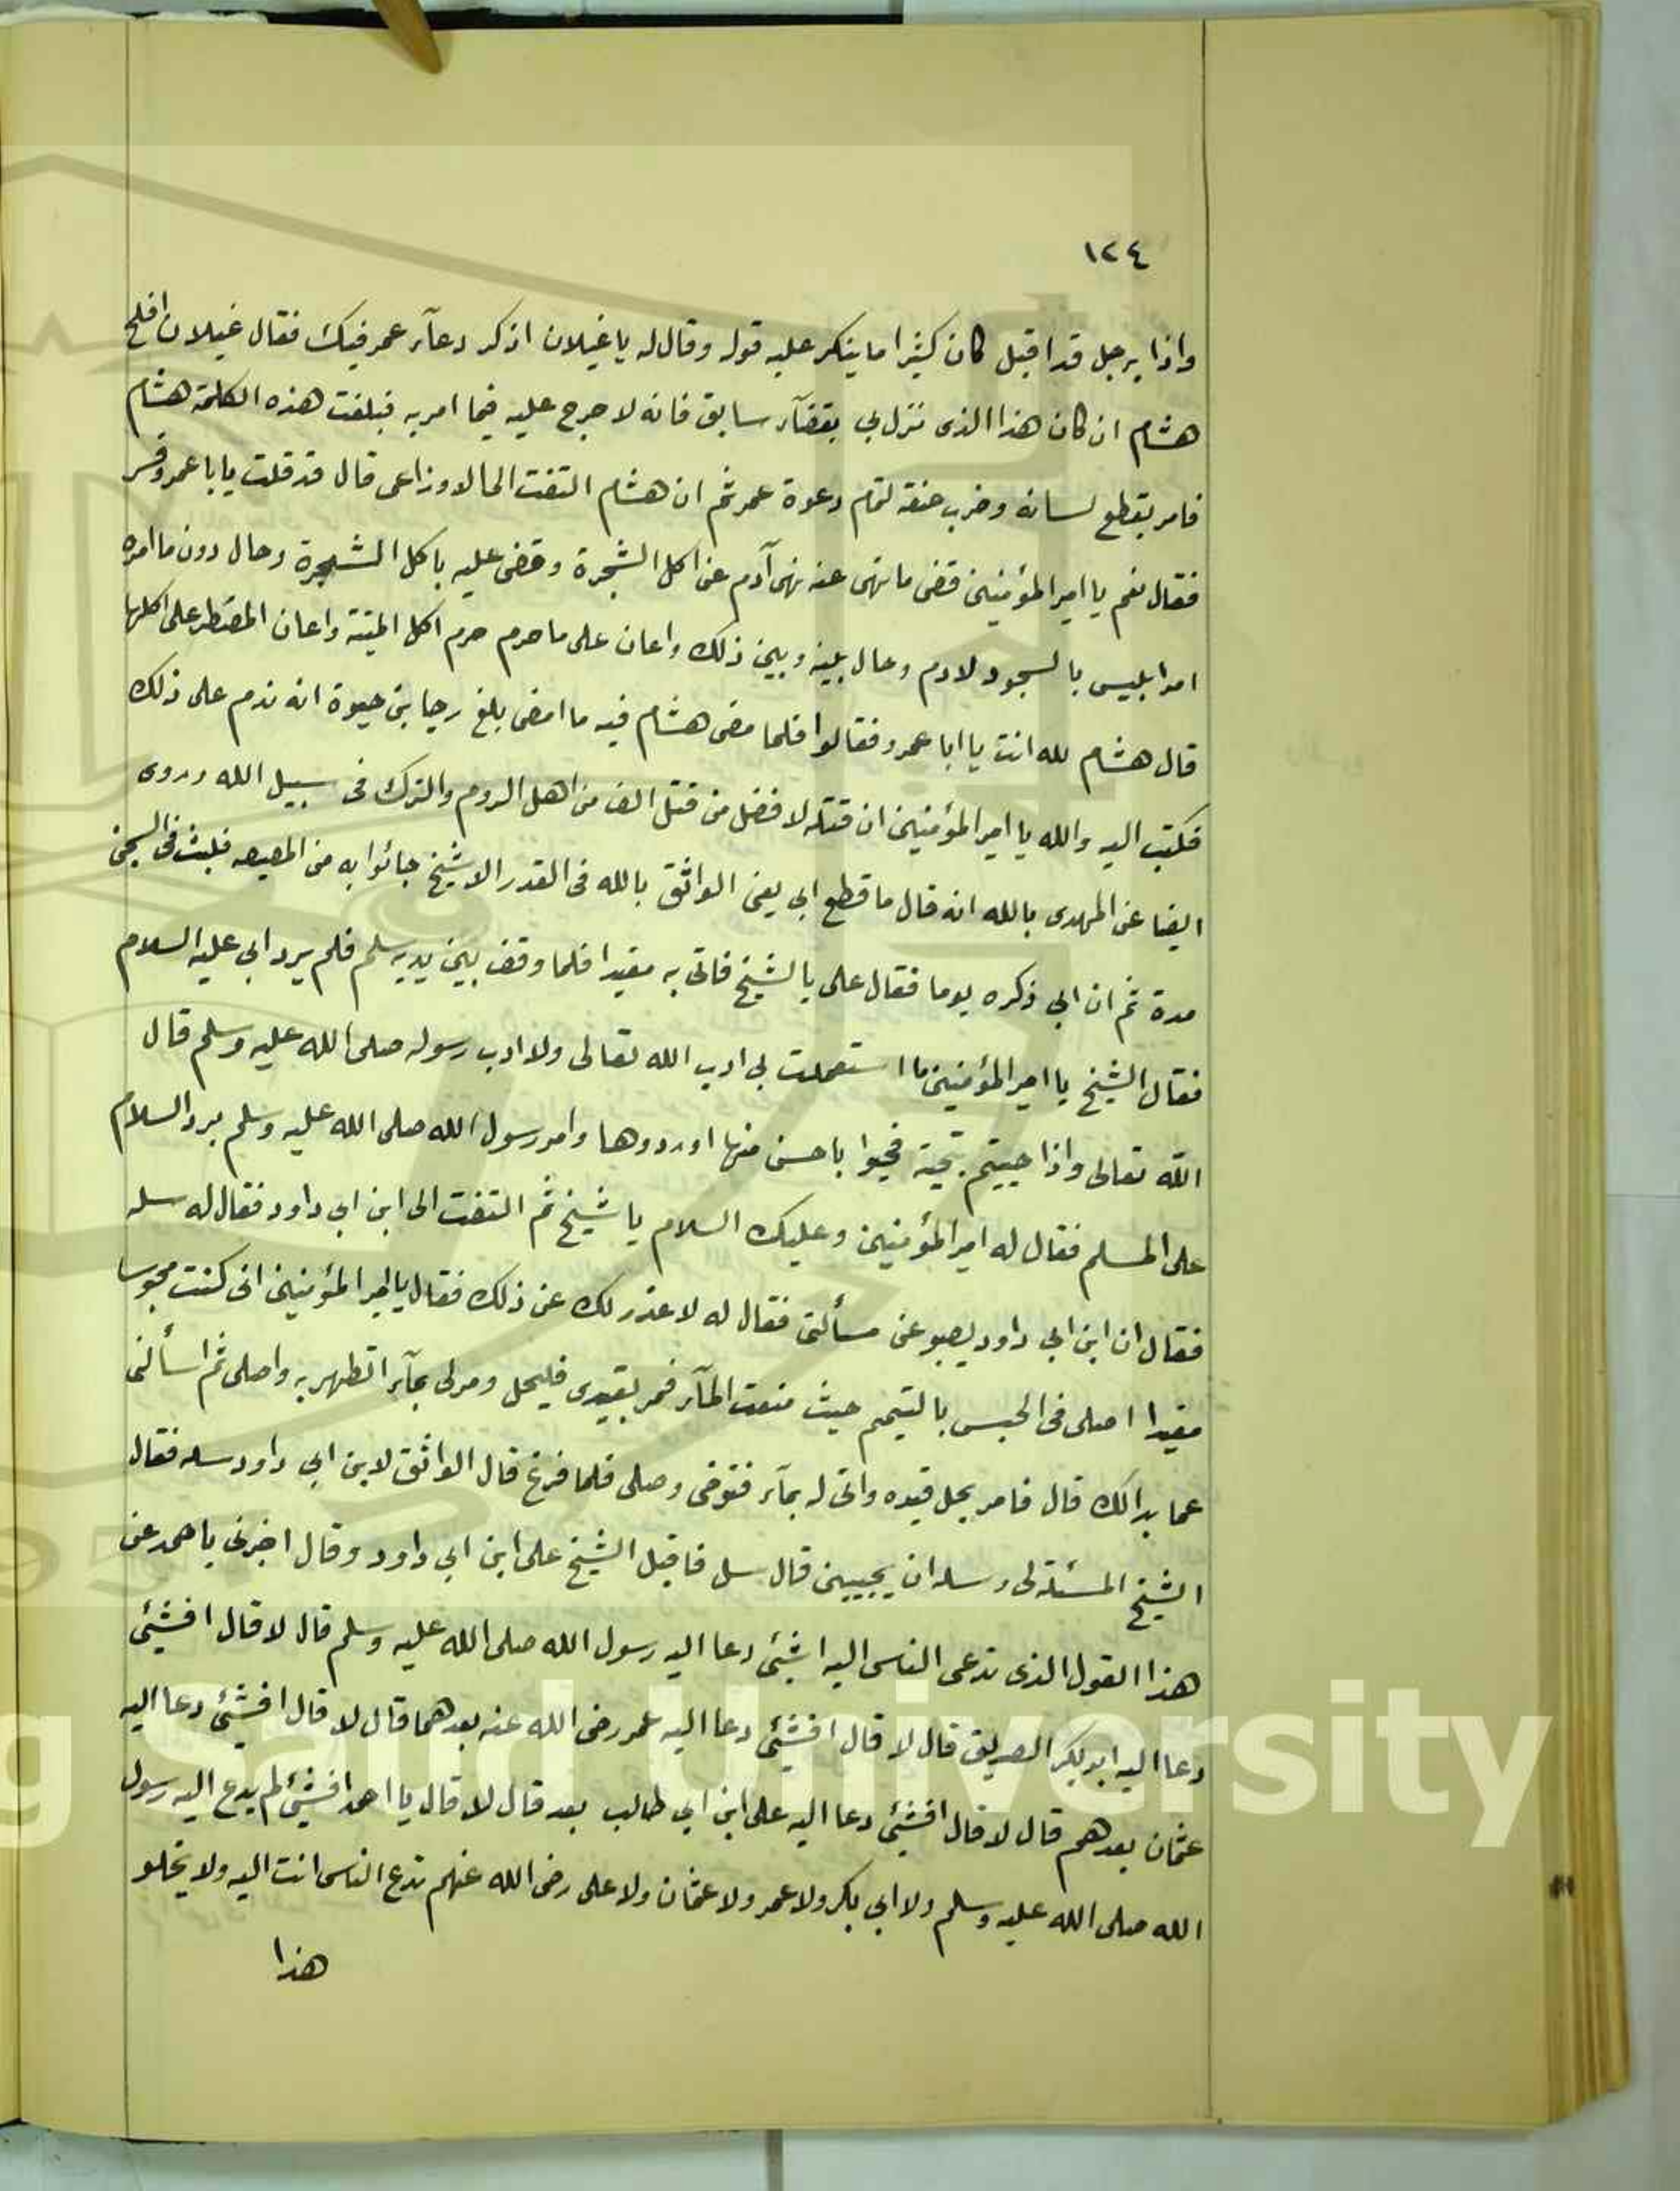 ١٢٤
واذا برجل قد اقبل كان كثيرا ما ينكر عليه قوله وقال له يا غيلان اذكر دعآء عمر فيك فقال غيلان افلح
هشام ان كان هذا الذى نزل بي بقضآء سابق فانه لا حرج عليه فيما امر به فبلغت هذه الكلمة هشام
فامر بقطع لسانه وضرب عنقه لتمام دعوة عمر ثم ان هشام التفت الى الاوزاعى قال قد قلت يا با عمرو ففسر
فقال نعم يا امير المؤمنين قضى ما نهى عنه نهى آدم عن اكل الشجرة وقضى عليه باكل الشجرة وحال دون ما امره
امر ابليس بالسجود لادم وحال بينه وبين ذلك واعان على ما حرم حرم اكل الميتة واعان المضطر على اكلها
قال هشام لله انت يا ابا عمرو فقالوا فلما مضى هشام فيه ما امضى بلغ رجا بن حيوة انه ندم على ذلك
فكتب اليه والله يا امير المؤمنين ان قتله لافضل من قتل الف من اهل الروم والترك فى سبيل الله وروى
ايضا عن المهدى بالله انه قال ما قطع ابي يعنى الواثق بالله فى القدر الا شيخ جائوا به من المصيصه فلبث فى السجن
مدة ثم ان ابي ذكره يوما فقال على بالشيخ فاتى به مقيدا فلما وقف بين يديه سلم فلم يرد ابي عليه السلام
فقال الشيخ يا امير المؤمنين ما استعملت بي ادب الله تعالى ولا ادب رسوله صلى الله عليه وسلم قال
الله تعالى واذا حييتم بتحية فحيوا باحسن منها او ردوها وامر رسول الله صلى الله عليه وسلم برد السلام
على المسلم فقال له امير المؤمنين وعليك السلام يا شيخ ثم التفت الى ابن ابي داود فقال له سله
فقال ان ابن ابي داود يصبو عن مسألتى فقال له لا عذر لك عن ذلك فقال يا امير المؤمنين انى كنت محبوسا
مقيدا اصلى فى الحبس بالتيمم حيث منعت المآء فمر بقيدى فليحل ومر لى بمآء اتطهر به واصلى ثم اسألنى
عما بدا لك قال فامر بحل قيده واتى له بمآء فتوضى وصلى فلما فرغ قال الواثق لابن ابي داود سله فقال
الشيخ المسئلة لى وسله ان يجيبين قال سل فاقبل الشيخ على ابن ابي داود وقال اخبرنى يا احمد عن
هذا القول الذى تدعى الناس اليه اشئى دعا اليه رسول الله صلى الله عليه وسلم قال لا قال افشئى
دعا اليه ابو بكر الصديق قال لا قال افشئى دعا اليه عمر رضى الله عنه بعدهما قال لا قال افشئى دعا اليه
عثمان بعدهم قال لا قال افشئى دعا اليه على ابن ابي طالب بعد قال لا قال يا احمد افشئى لم يدع اليه رسول
الله صلى الله عليه وسلم ولا ابي بكر ولا عمر ولا عثمان ولا على رضى الله عنهم تدع الناس انت اليه ولا يخلو
هذا
g Saud University